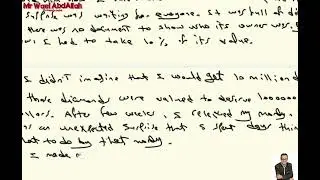 Mr Wael AbdAllah
surprise was waiting for everyone. It was full of di
there was no document to show who its owner was.
I had to take 10% of its value.
I didn't imagine that I would get 10 million d
those diamonds were valued to deserve 1000000
ollars. After few weeks, I released my money.
as an unexpected surprise that I spent days thin
hat to do by that money.
I made